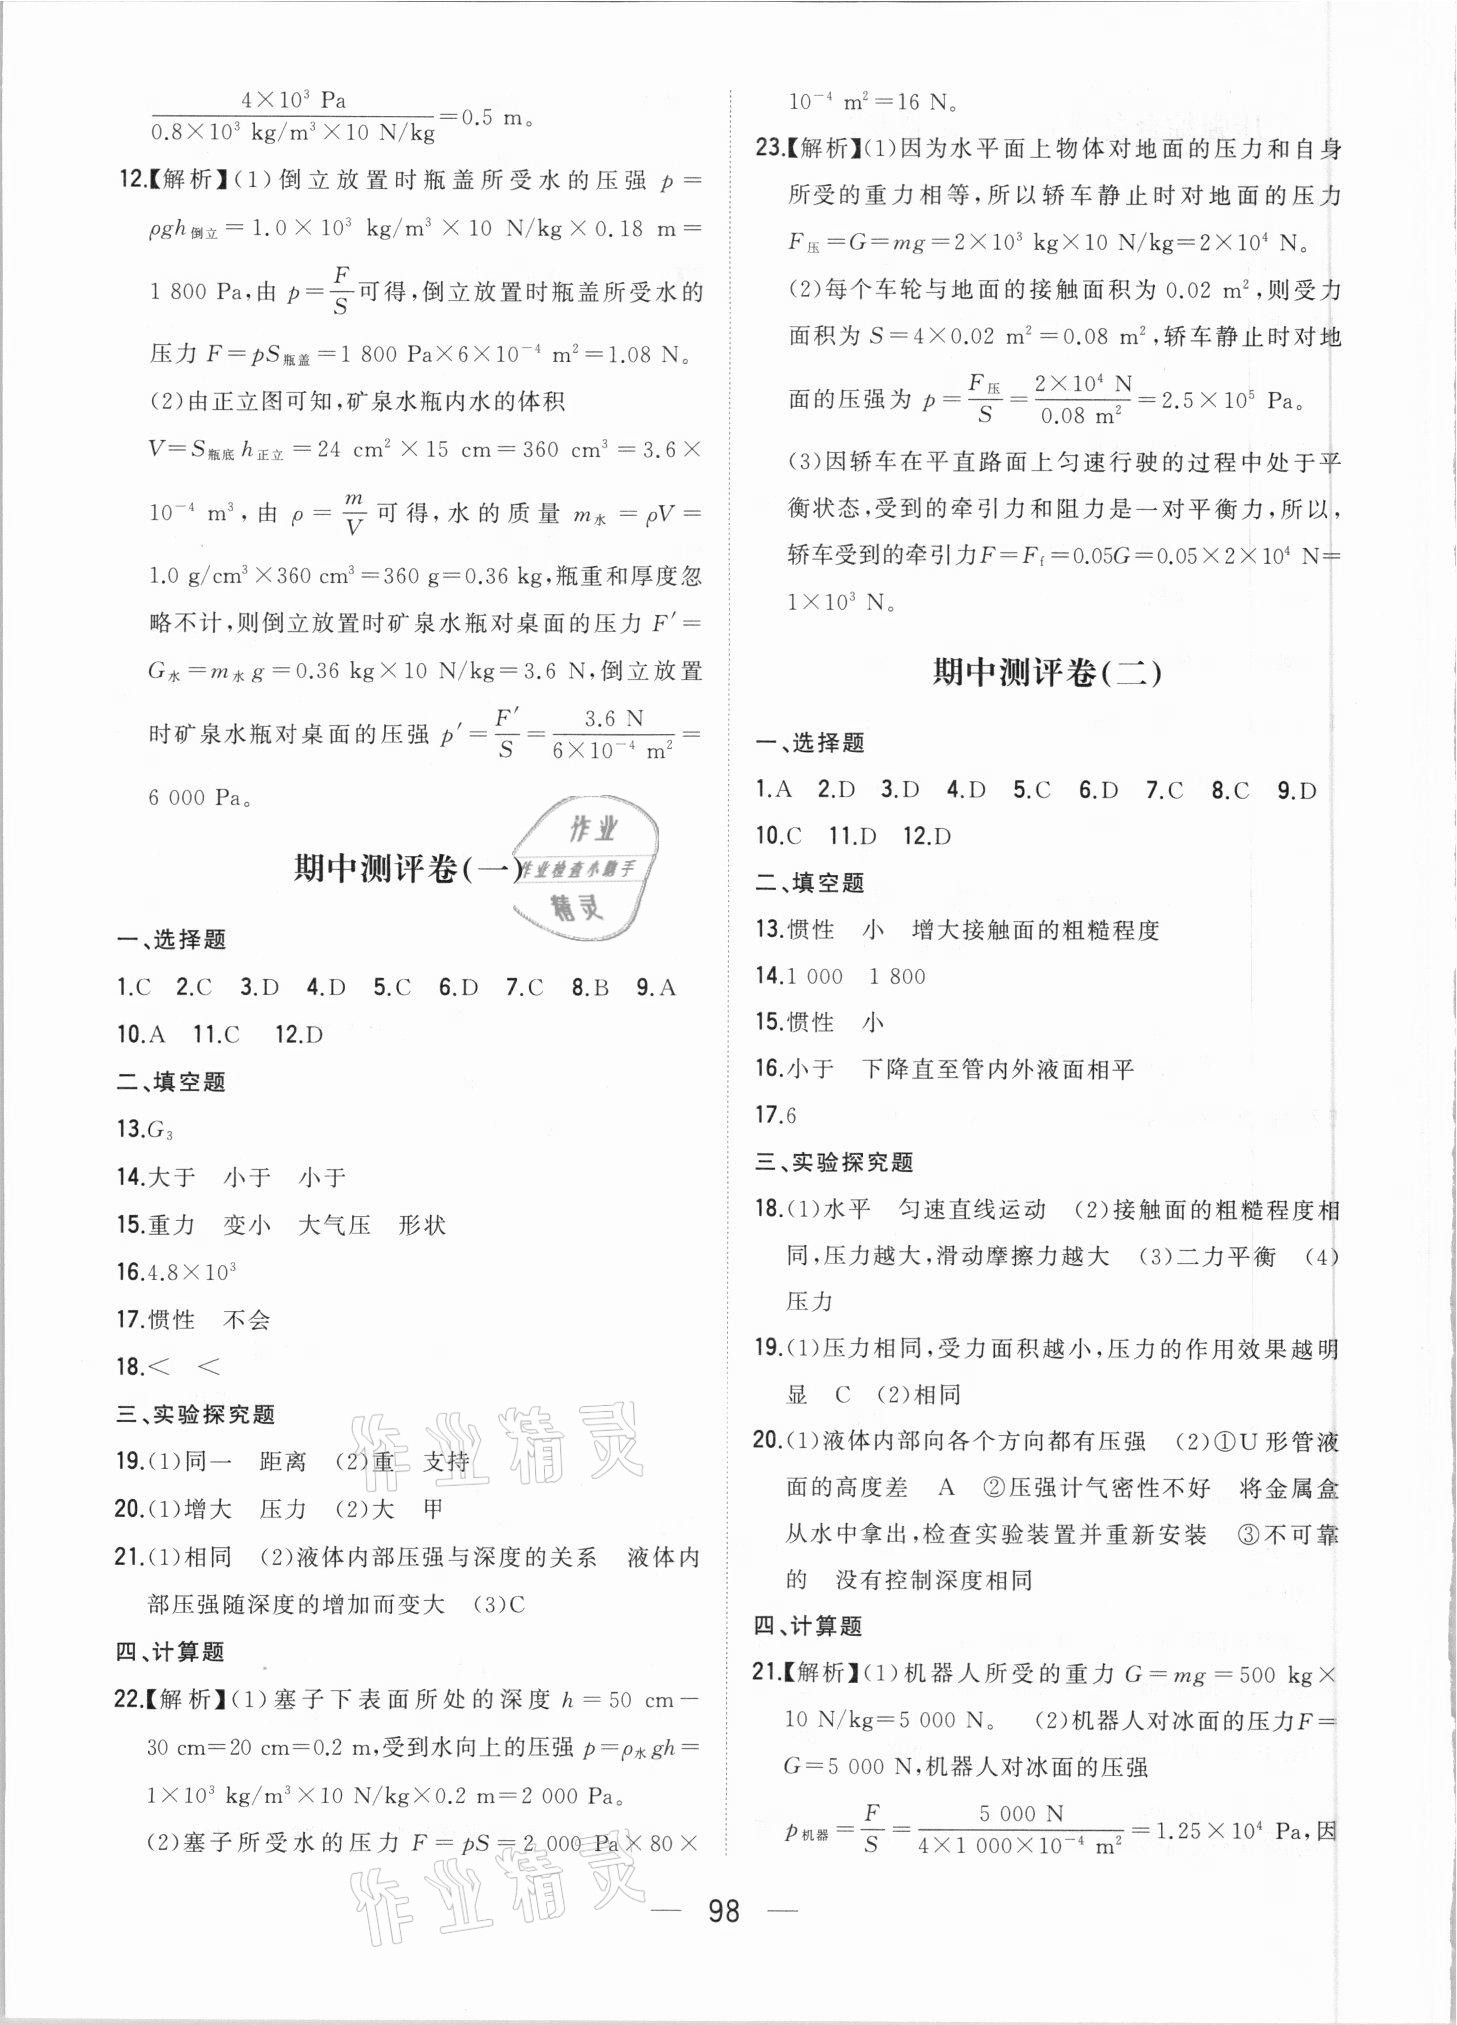 4×10³ Pa
0.8×10³ kg/m³×10 N/kg =0.5 m。
12.【解析】(1)倒立放置时瓶盖所受水的压强 p=
ρgh倒立=1.0×10³ kg/m³×10 N/kg×0.18 m=
1 800 Pa,由 p=F/S可得,倒立放置时瓶盖所受水的
压力 F=pS瓶盖=1 800 Pa×6×10⁻⁴ m²=1.08 N。
(2)由正立图可知,矿泉水瓶内水的体积
V=S瓶底h正立=24 cm²×15 cm=360 cm³=3.6×
10⁻⁴ m³,由 ρ=m/V可得,水的质量 m水=ρV=
1.0 g/cm³×360 cm³=360 g=0.36 kg,瓶重和厚度忽
略不计,则倒立放置时矿泉水瓶对桌面的压力 F′=
G水=m水g=0.36 kg×10 N/kg=3.6 N,倒立放置
时矿泉水瓶对桌面的压强 p′=F′/S=3.6 N/6×10⁻⁴ m²=
6 000 Pa。
期中测评卷(一)
一、选择题
1.C 2.C 3.D 4.D 5.C 6.D 7.C 8.B 9.A
10.A 11.C 12.D
二、填空题
13.G₃
14.大于 小于 小于
15.重力 变小 大气压 形状
16.4.8×10³
17.惯性 不会
18.< <
三、实验探究题
19.(1)同一 距离 (2)重 支持
20.(1)增大 压力 (2)大 甲
21.(1)相同 (2)液体内部压强与深度的关系 液体内
部压强随深度的增加而变大 (3)C
四、计算题
22.【解析】(1)塞子下表面所处的深度 h=50 cm-
30 cm=20 cm=0.2 m,受到水向上的压强 p=ρ水gh=
1×10³ kg/m³×10 N/kg×0.2 m=2 000 Pa。
(2)塞子所受水的压力 F=pS=2 000 Pa×80×
10⁻⁴ m²=16 N。
23.【解析】(1)因为水平面上物体对地面的压力和自身
所受的重力相等,所以轿车静止时对地面的压力
F压=G=mg=2×10³ kg×10 N/kg=2×10⁴ N。
(2)每个车轮与地面的接触面积为 0.02 m²,则受力
面积为 S=4×0.02 m²=0.08 m²,轿车静止时对地
面的压强为 p=F压/S=2×10⁴ N/0.08 m²=2.5×10⁵ Pa。
(3)因轿车在平直路面上匀速行驶的过程中处于平
衡状态,受到的牵引力和阻力是一对平衡力,所以,
轿车受到的牵引力F=Ff=0.05G=0.05×2×10⁴ N=
1×10³ N。
期中测评卷(二)
一、选择题
1.A 2.D 3.D 4.D 5.C 6.D 7.C 8.C 9.D
10.C 11.D 12.D
二、填空题
13.惯性 小 增大接触面的粗糙程度
14.1 000 1 800
15.惯性 小
16.小于 下降直至管内外液面相平
17.6
三、实验探究题
18.(1)水平 匀速直线运动 (2)接触面的粗糙程度相
同,压力越大,滑动摩擦力越大 (3)二力平衡 (4)
压力
19.(1)压力相同,受力面积越小,压力的作用效果越明
显 C (2)相同
20.(1)液体内部向各个方向都有压强 (2)①U 形管液
面的高度差 A ②压强计气密性不好 将金属盒
从水中拿出,检查实验装置并重新安装 ③不可靠
的 没有控制深度相同
四、计算题
21.【解析】(1)机器人所受的重力 G=mg=500 kg×
10 N/kg=5 000 N。 (2)机器人对冰面的压力F=
G=5 000 N,机器人对冰面的压强
p机器=F/S=5 000 N/4×1 000×10⁻⁴ m²=1.25×10⁴ Pa,因
作业
作业检查小助手
精灵
作业精灵
作业精灵
— 98 —